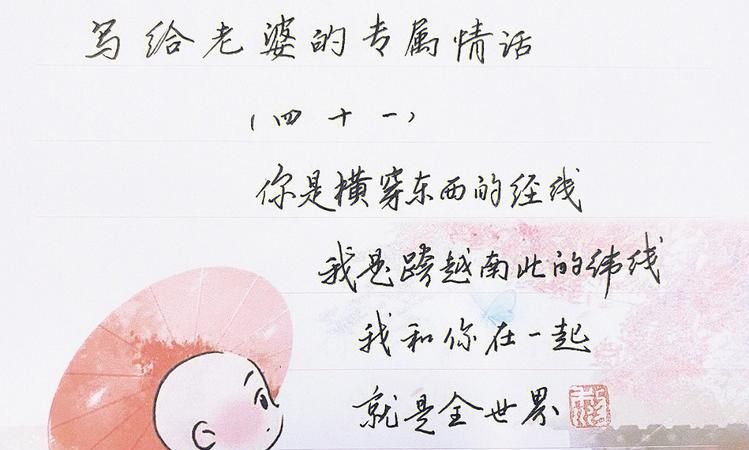 写给老婆的专属情话
（四十一）
你是横穿东西的经线
我是跨越南北的纬线
我和你在一起
就是全世界